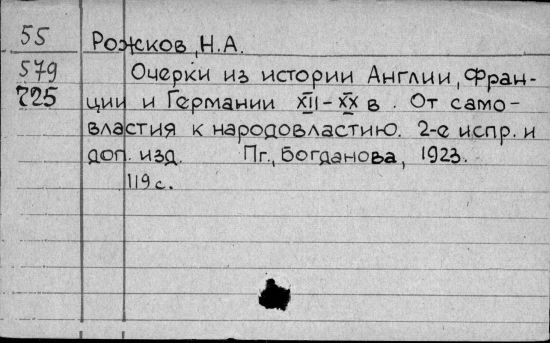 55
Рожков, Н.А.
579
Очерки из истории Англии, Фран-
725
ции и Германии XII-XX в. От само-
властия к народовластию. 2-е испр. и
доп. изд. Пг., Богданова, 1923.
119 с.